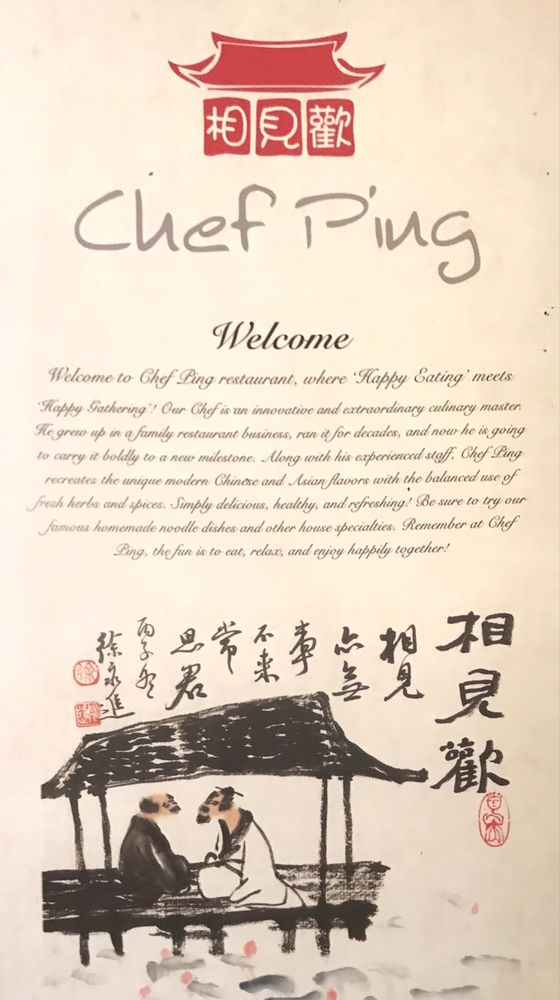 相見歡
Chef Ping
Welcome
Welcome to Chef Ping restaurant, where 'Happy Eating' meets
'Happy Gathering'! Our Chef is an innovative and extraordinary culinary master.
He grew up in a family restaurant business, ran it for decades, and now he is going
to carry it boldly to a new milestone. Along with his experienced staff, Chef Ping
recreates the unique modern Chinese and Asian flavors with the balanced use of
fresh herbs and spices. Simply delicious, healthy, and refreshing! Be sure to try our
famous homemade noodle dishes and other house specialties. Remember at Chef
Ping, the fun is to eat, relax, and enjoy happily together!
相見歡
相見
亦無
事
不来
常
思君
丙子冬
徐永進